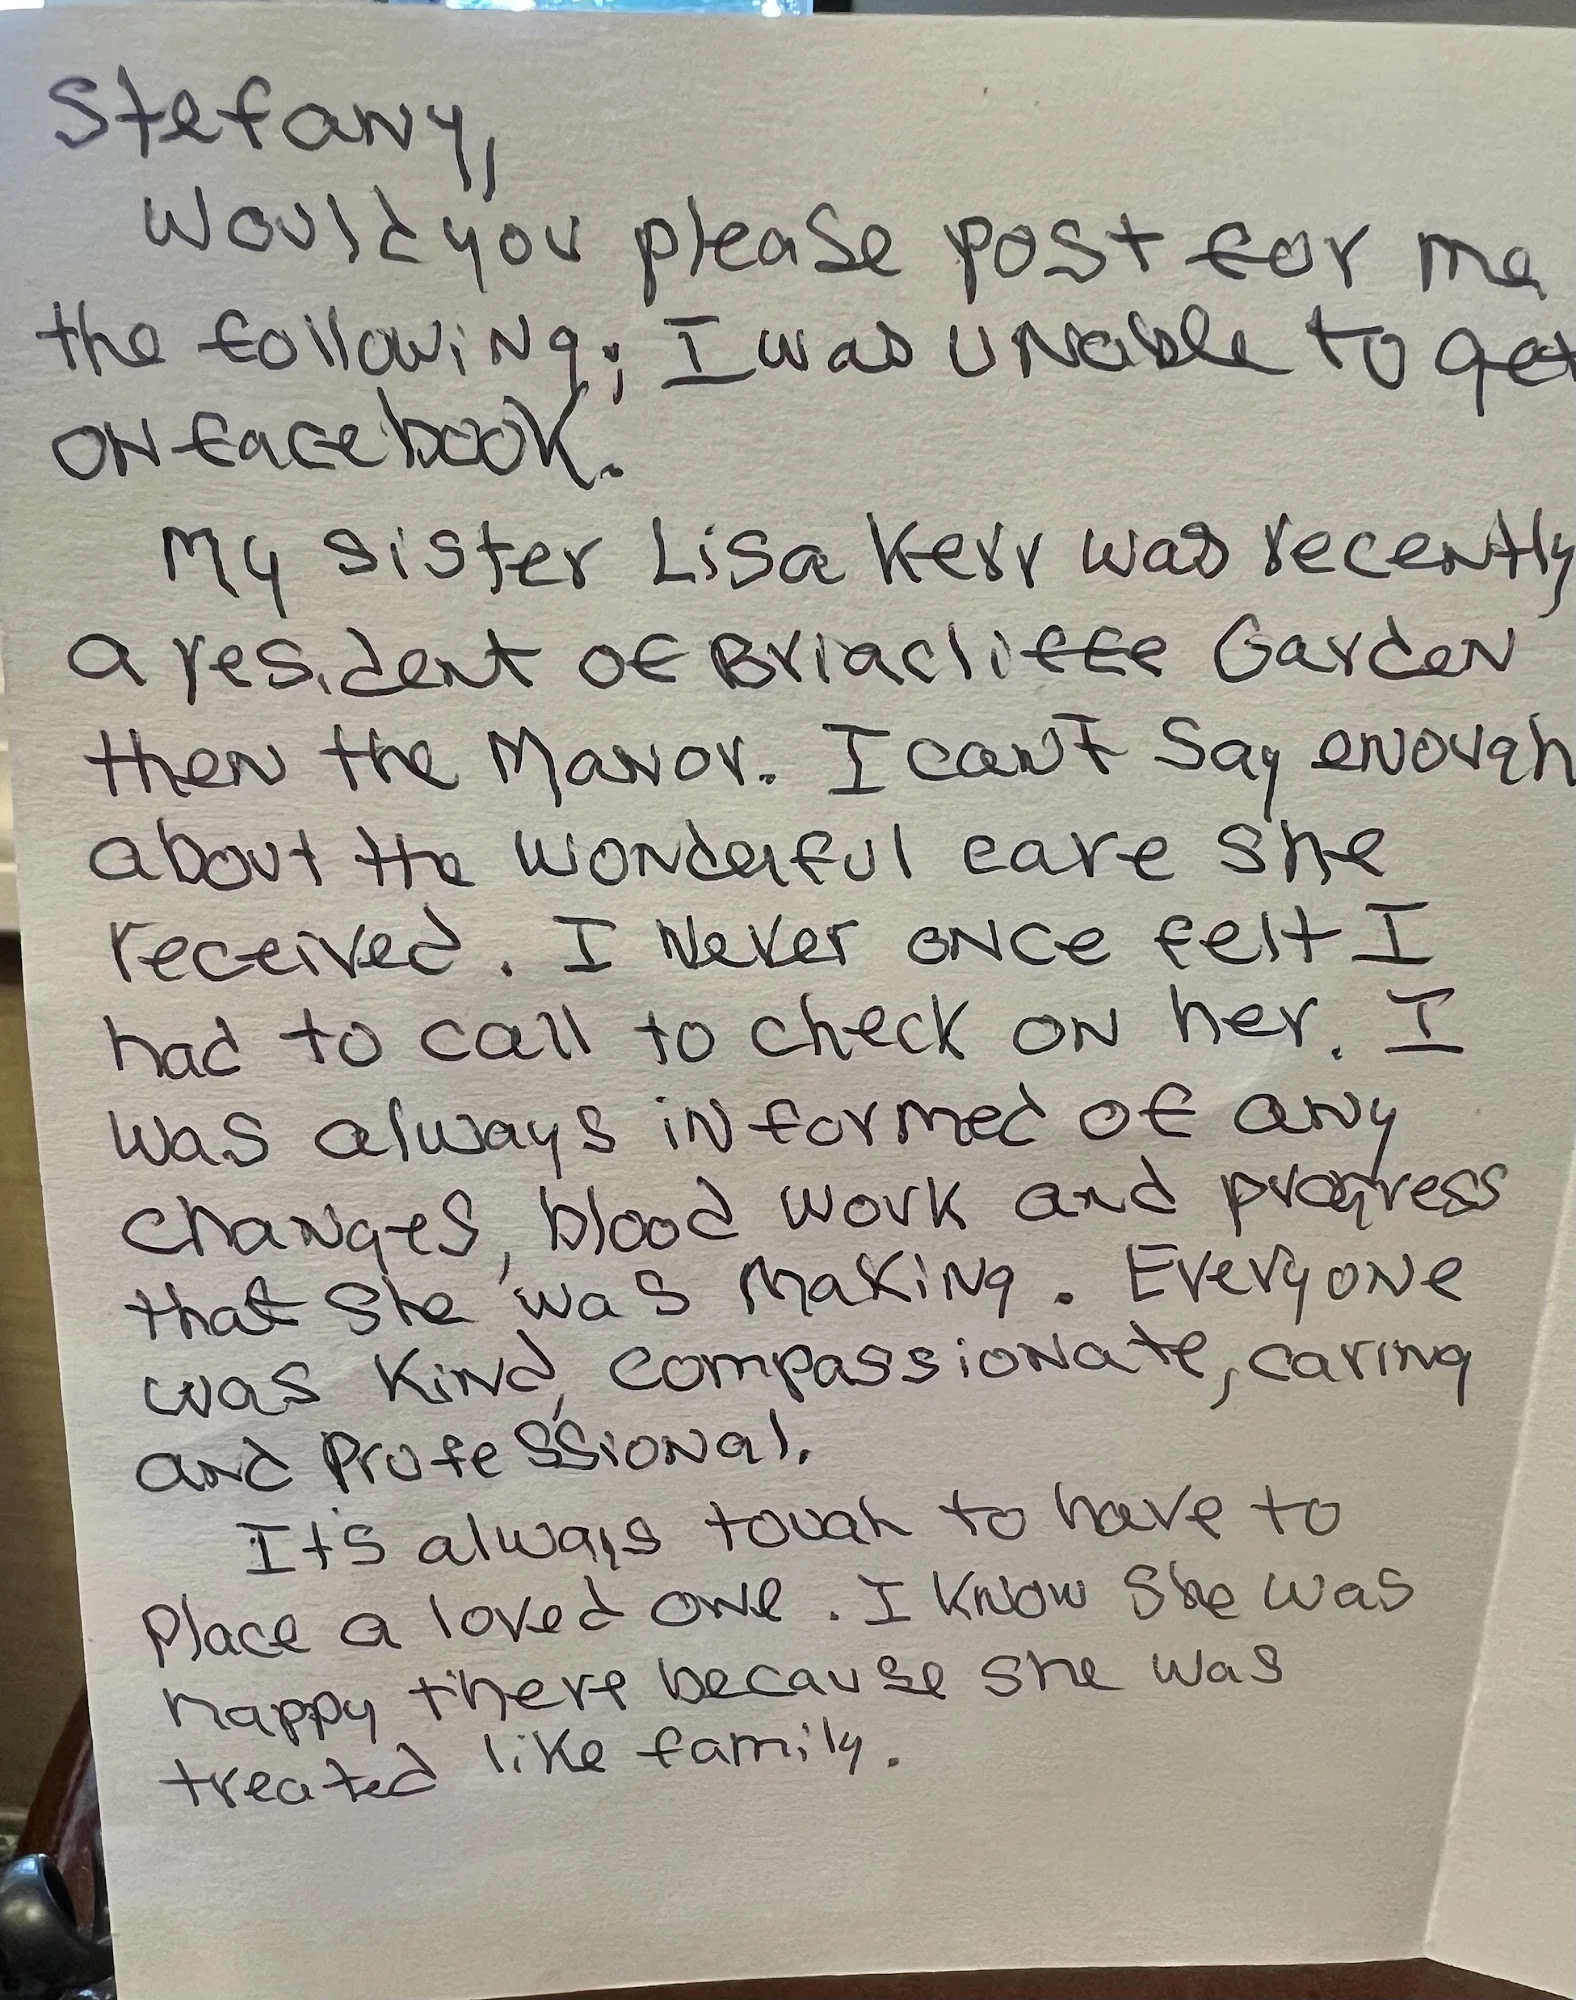 Stefany,
Would you please post for me
the following; I was unable to get
on facebook.
My sister Lisa Kerr was recently
a resident of Briacliffe Garden
then the Manor. I can't say enough
about the wonderful care she
received. I Never once felt I
had to call to check on her. I
was always informed of any
changes, blood work and progress
that she was making. Everyone
was kind, compassionate, caring
and professional.
It's always tough to have to
place a loved one. I know she was
happy there because she was
treated like family.